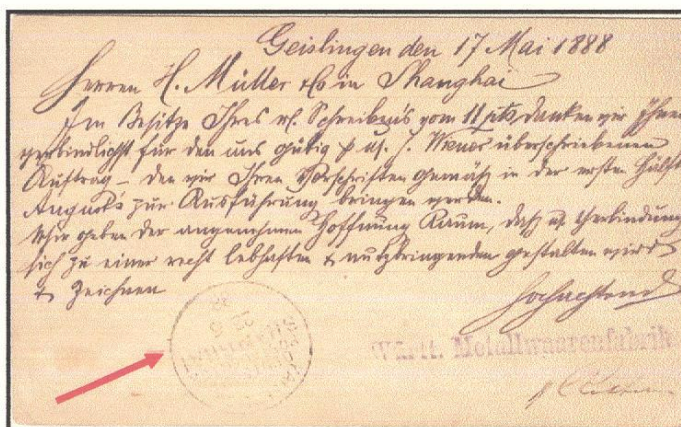 Geislingen den 17 Mai 1888
Herren H. Müller & Co in Shanghai
Im Besitze Ihres w. Schreibens vom 11 danken wir Ihnen
verbindlichst für den uns gütigst überschriebenen
Auftrag – den wir Ihren Vorschriften gemäß in der ersten Hälfte
Augusts zur Ausführung bringen werden.
Wir geben der angenehmen Hoffnung Raum, daß Verbindung
sich zu einer recht lebhaften & nutzbringenden gestalten wird
& zeichnen
Hochachtend
Württ. Metallwaarenfabrik
SHANGHAI